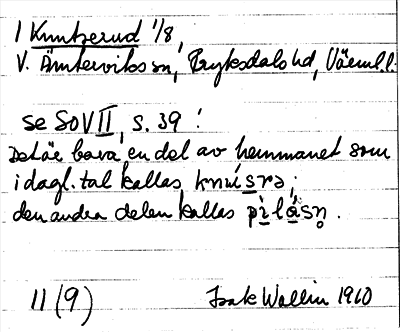 1 Knutserud 1/8,
V. Ämterviks sn, Fryksdals hd, Värml.l.
se SOV II, s. 39!
Det är bara en del av hemmanet som
i dagl. tal kallas knúsrə;
den andra delen kallas pìlåsn̥.
11 (9) Isak Wallin 1910